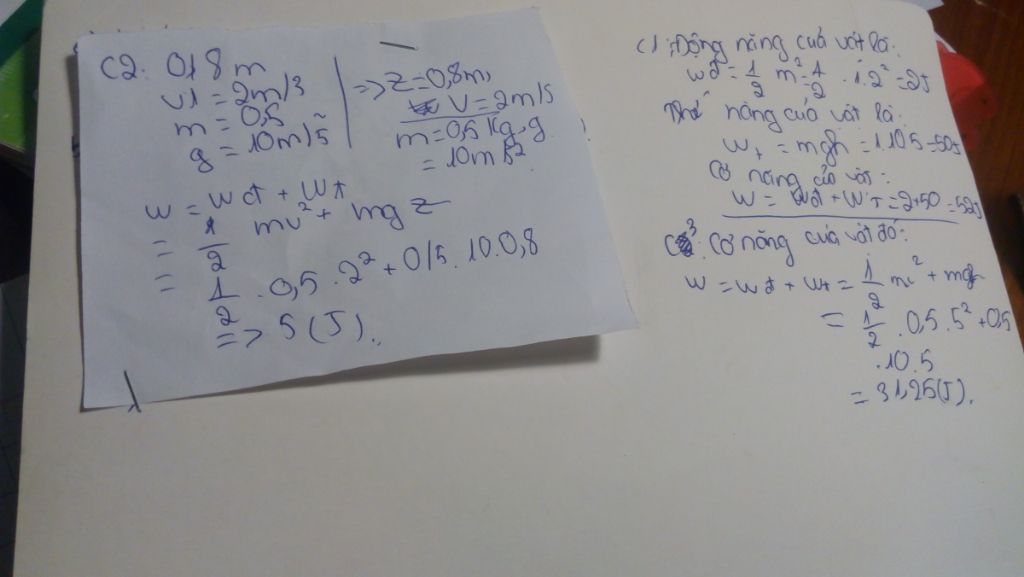 C2: 0,8 m
v1 = 2m/s
m = 0,5
g = 10m/s²
=> z = 0,8m,
v = 2m/s
m = 0,5 kg. g
= 10m/s²
W = Wđ + Wt
= 1/2 mv² + mgz
= 1/2 . 0,5 . 2² + 0,5 . 10 . 0,8
=> 5 (J).
C1: Động năng của vật là:
Wđ = 1/2 m² = 1/2 . 1 . 2² = 2J
Thế năng của vật là:
Wt = mgh = 1.10.5 = 50J
Cơ năng của vật:
W = Wđ + Wt = 2+50 = 52J
C3: Cơ năng của vật đó:
W = Wđ + Wt = 1/2 mv² + mgh
= 1/2 . 0,5 . 5² + 0,5
. 10 . 5
= 31,25(J).